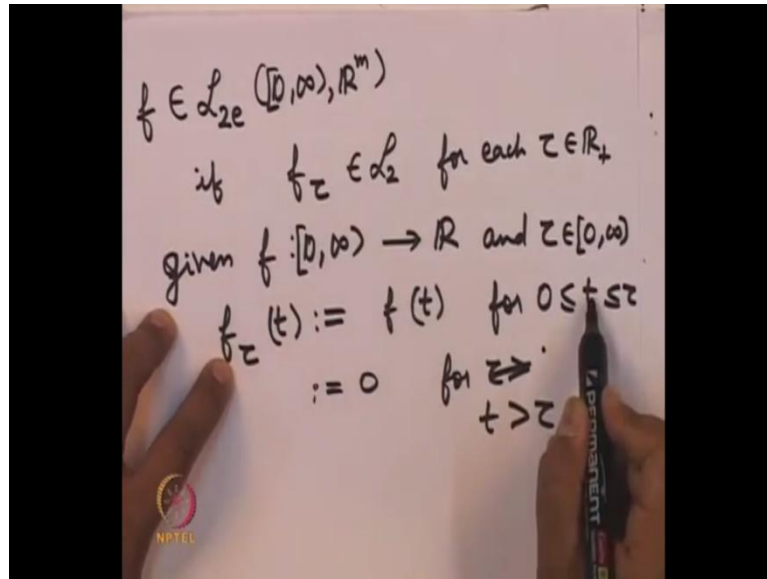 f ∈ ℒ₂ₑ ([0,∞), ℝᵐ)
if f_τ ∈ ℒ₂ for each τ ∈ ℝ₊
given f :[0,∞) → ℝ and τ∈[0,∞)
f_τ (t) := f(t) for 0 ≤ t ≤ τ
:= 0 for
t > τ
PERMANENT
NPTEL